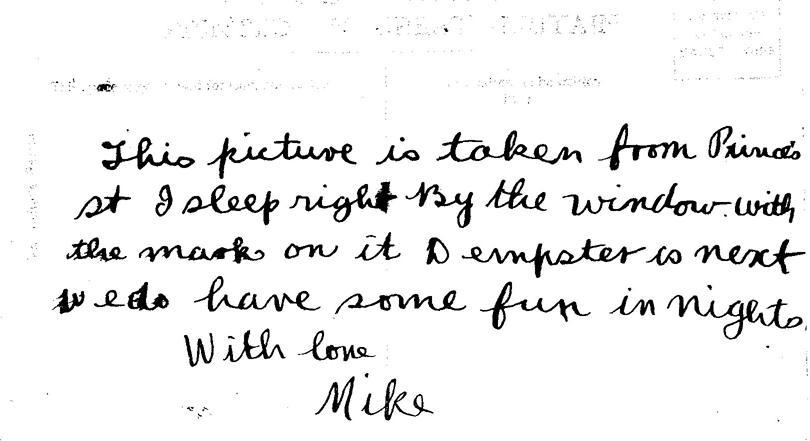 This picture is taken from Princes
st I sleep right By the window. with
the mark on it Dempster is next
we do have some fun in nights
With love
Mike